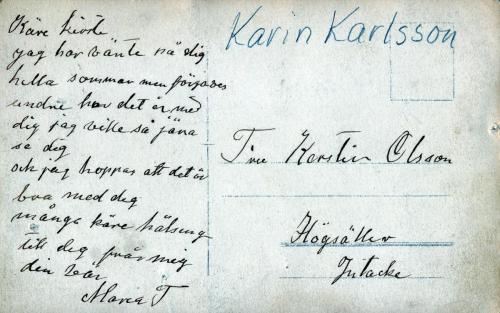 Käre
jag har vänte på dig
hella sommar men förjeves
undre hur det är med
dig jag ville så jära
se dig
och jag hoppas att det är
bra med deg
många käre hälsning
till deg från meg
din vän
Maria T
Karin Karlsson
Fru Kerstin Olsson
Högsätter